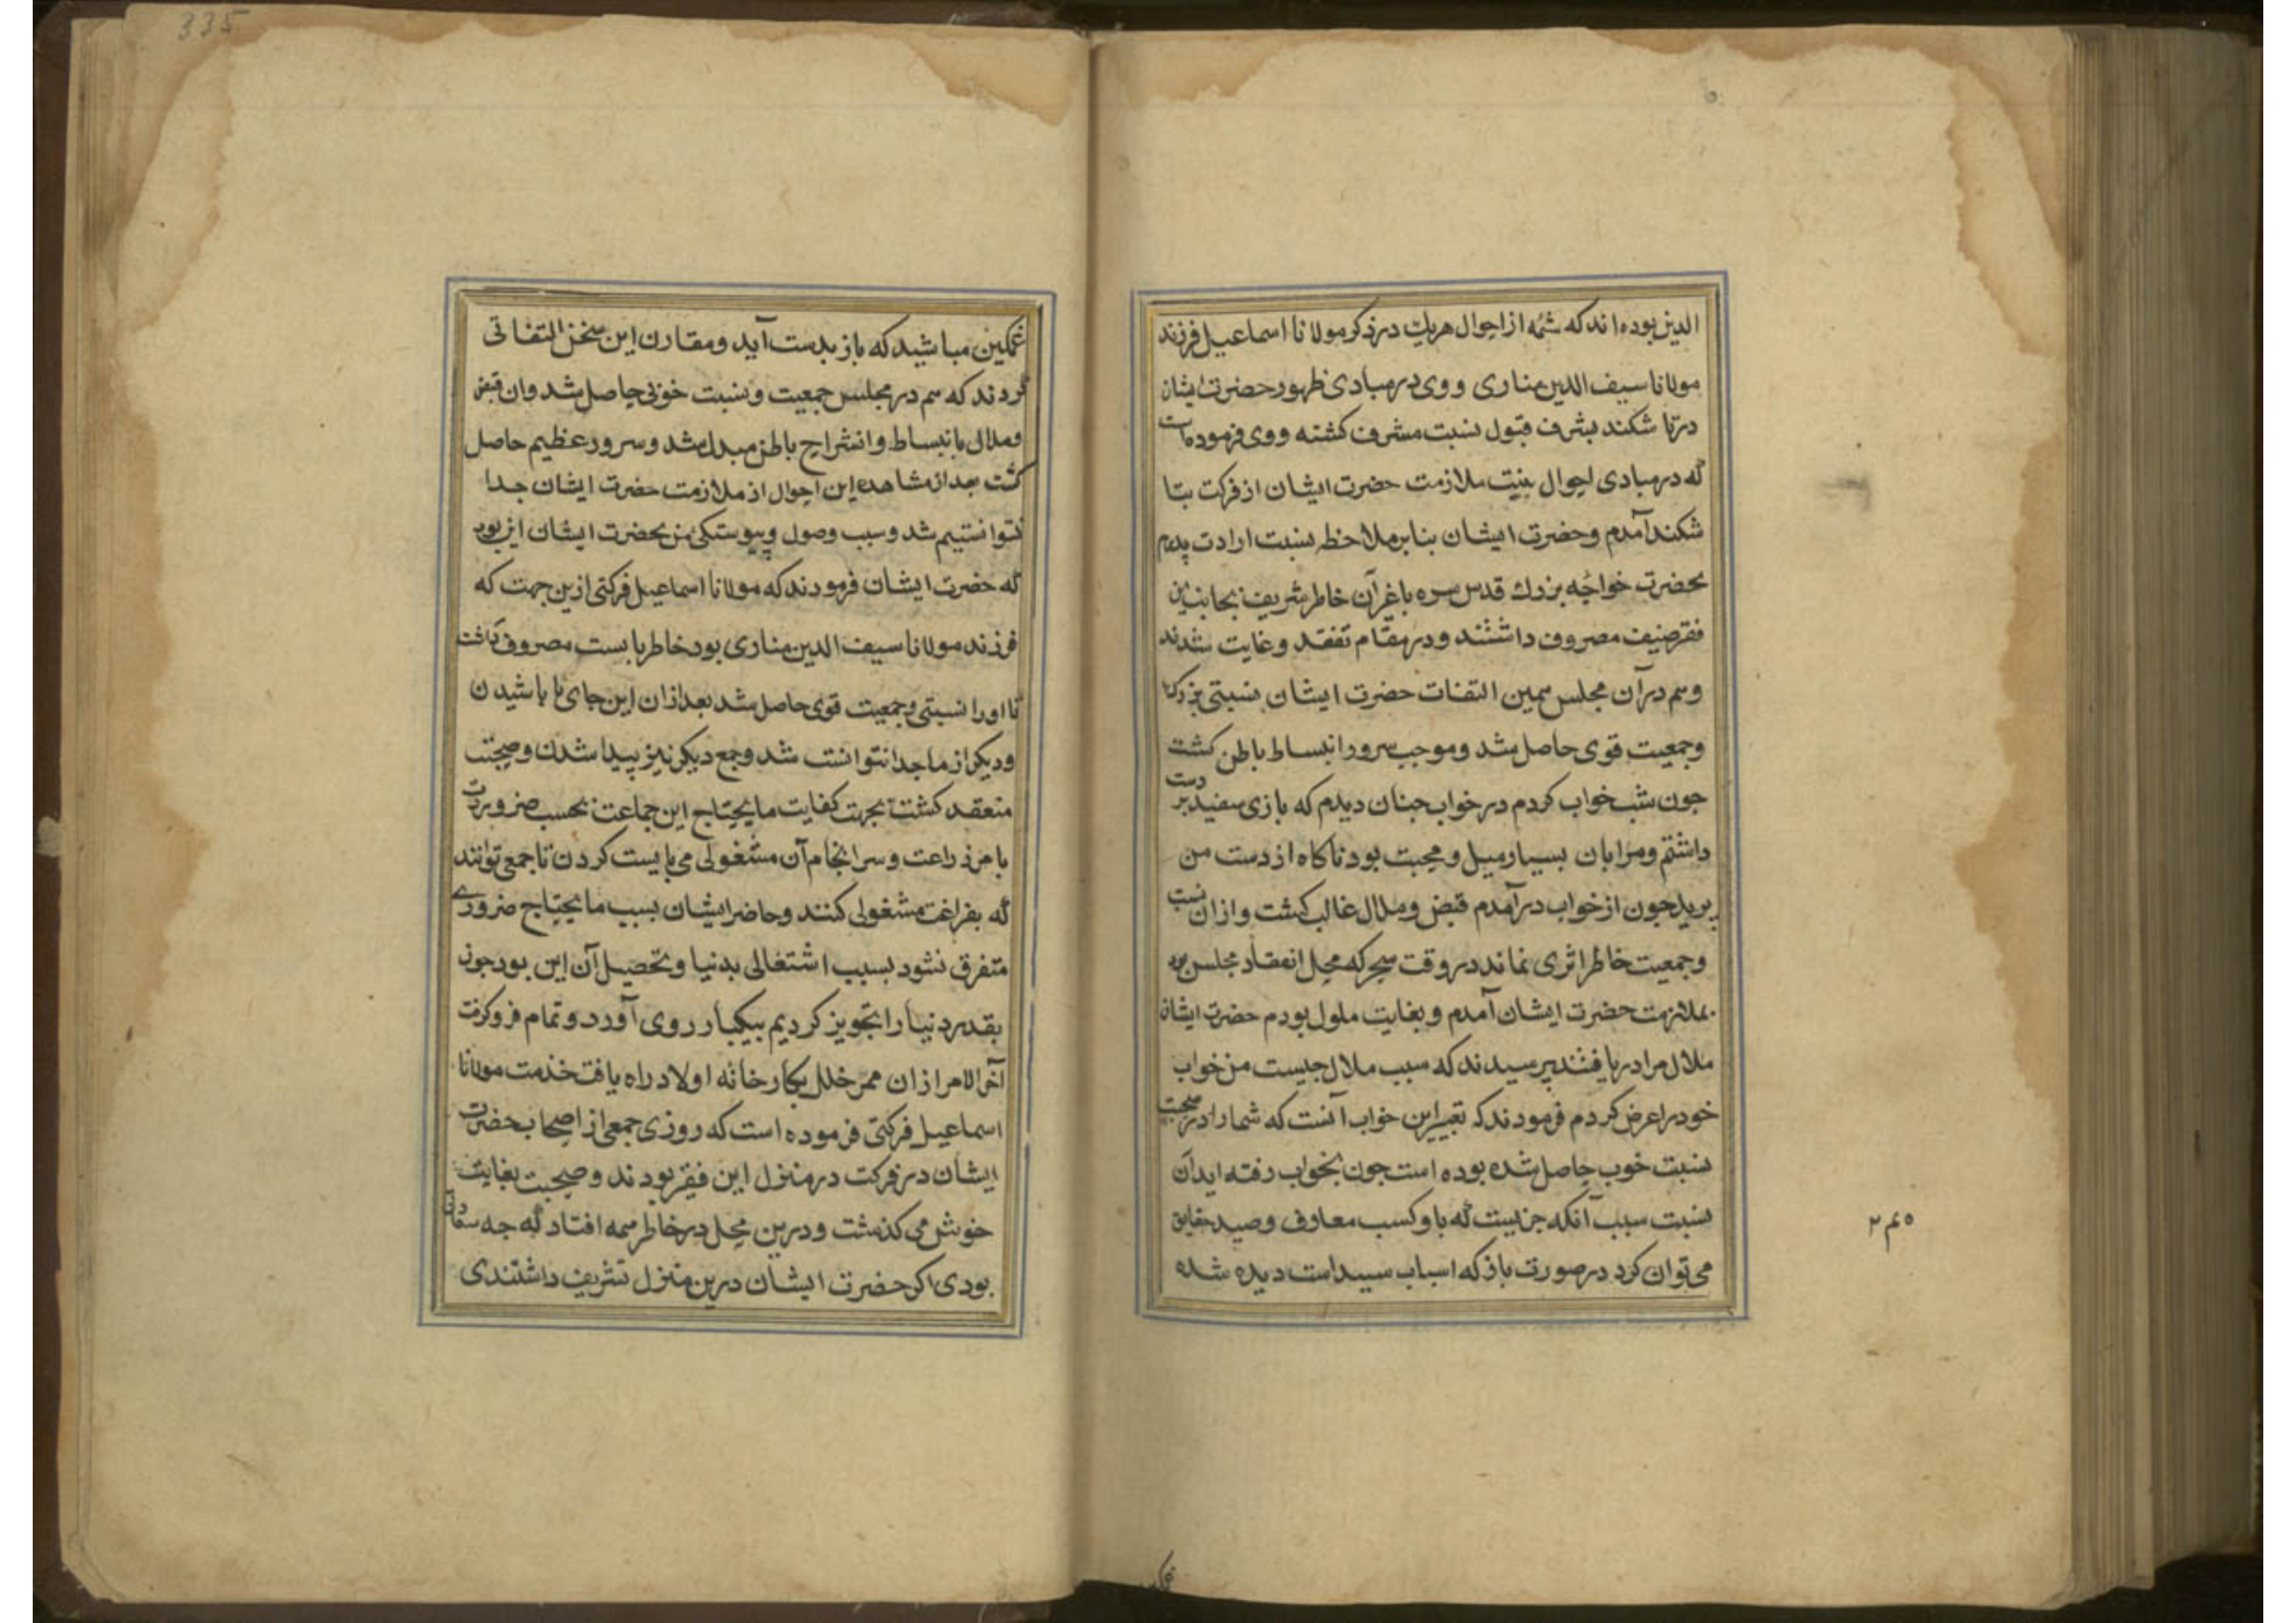 الدین بوده‌اند که شمّه از احوال هریک در ذکر مولانا اسماعیل فرزند
مولانا سیف الدین مناری و وی در مبادی ظهور حضرت ایشان
در تا شکند بشرف قبول نسبت مشرف کشته و وی فرموده است
که در مبادی احوال بنیت ملازمت حضرت ایشان از فرکت بتا
شکند آمدم و حضرت ایشان بنابر ملاحظه نسبت ارادت پدرم
بحضرت خواجه بزرك قدس سره باغرآن خاطر شریف بجانب این
فقر صنیف مصروف داشتند و در مقام تفقد و غایت شدند
و هم در آن مجلس بیمین التفات حضرت ایشان نسبتی بزرک
و جمعیت قوی حاصل شد و موجب سرور انبساط باطن کشت
جون شب خواب کردم در خواب جنان دیدم که بازی سفید بر دست
داشتم و مرا بان بسیار میل و محبت بود ناکاه از دست من
بپرید جون از خواب در آمدم قبض و ملال غالب کشت و از ان نسبت
و جمعیت خاطر اثری نماند در وقت سحر که محل انعقاد مجلس بود
بملازمت حضرت ایشان آمدم و بغایت ملول بودم حضرت ایشان
ملال مرا دریافتند پرسیدند که سبب ملال جیست من خواب
خود را عرض کردم فرمودند که تعبیر این خواب آنست که شما را در صحبت
نسبت خوب حاصل شده بوده است جون بخواب رفته اید آن
نسبت سبب آنکه جنیست که باو کسب معارف و صید حقایق
می توان کرد در صورت باز که اسباب سیداست دیده شده
۲۴۵
335
غمکین مباشید که باز بدست آید و مقارن این سخن التفاتی
کردند که هم در مجلس جمعیت و نسبت خوبی حاصل شد و ان قبض
و ملال بانبساط و انشراح باطن مبدل شد و سرور عظیم حاصل
کشت بعد از مشاهده این احوال از ملازمت حضرت ایشان جدا
نتوانستیم شد و سبب وصول و پیوستکی من بحضرت ایشان این بود
که حضرت ایشان فرمودند که مولانا اسماعیل فرکتی ازین جهت که
فرزند مولانا سیف الدین مناری بود خاطر بایست مصروف داشت
تا او را نسبتی و جمعیت قوی حاصل شد بعد از ان این جای با باشیدن
و دیکر از ما جدا نتوانست شد و جمع دیکر نیز پیدا شدن و صحبت
منعقد کشت بجهت کفایت ما یحتاج این جماعت بحسب ضرورت
بامر زراعت و سرانجام آن مشغولی می بایست کردن تا جمعی توانند
که بفراغت مشغولی کنند و حاضر ایشان بسبب ما یحتاج ضروری
متفرق نشود بسبب اشتغالی بدنیا و تحصیل آن این بود جون
بقدر دنیا را تجویز کردیم بیکبار روی آورد و تمام فروکرفت
آخر الامر از ان ممر خلل بکار خانه اولاد راه یافت خدمت مولانا
اسماعیل فرکتی فرموده است که روزی جمعی از اصحاب حضرت
ایشان در فرکت در منزل این فقیر بودند و صحبت بغایت
خوش می کذشت و درین محل در خاطر همه افتاد که جه سعادتی
بودی اکر حضرت ایشان درین منزل تشریف داشتندی